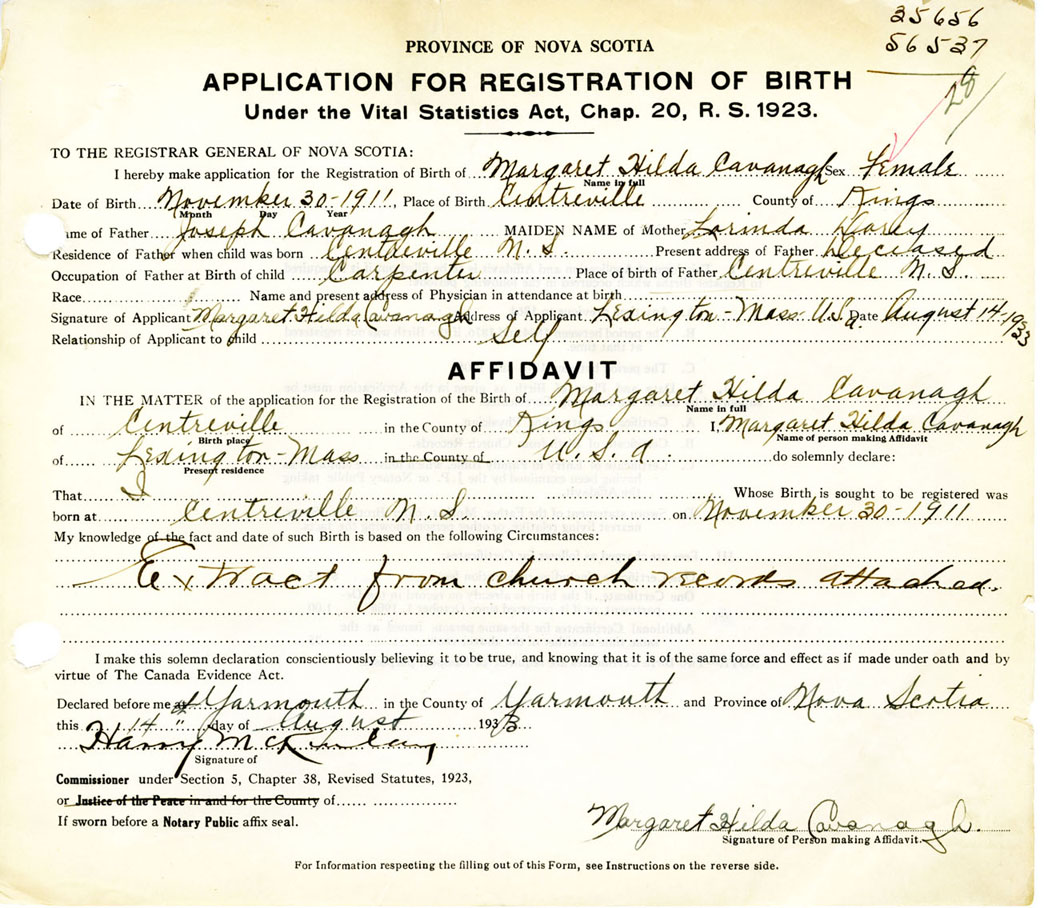 35656
56537
28
PROVINCE OF NOVA SCOTIA
APPLICATION FOR REGISTRATION OF BIRTH
Under the Vital Statistics Act, Chap. 20, R. S. 1923.
TO THE REGISTRAR GENERAL OF NOVA SCOTIA:
I hereby make application for the Registration of Birth of Margaret Hilda Cavanagh Sex Female
Name in full
Date of Birth November 30-1911, Place of Birth Centreville County of Kings
Month Day Year
me of Father Joseph Cavanagh MAIDEN NAME of Mother Lorinda
Residence of Father when child was born Centreville N. S. Present address of Father Deceased
Occupation of Father at Birth of child Carpenter Place of birth of Father Centreville N. S.
Race Name and present address of Physician in attendance at birth
Signature of Applicant Margaret Hilda Cavanagh Address of Applicant Lexington-Mass U.S.a. Date August 14-1933
Relationship of Applicant to child Self
AFFIDAVIT
IN THE MATTER of the application for the Registration of the Birth of Margaret Hilda Cavanagh
Name in full
of Centreville in the County of Kings I, Margaret Hilda Cavanagh
Birth place Name of person making Affidavit
of Lexington-Mass in the County of U.S.a. do solemnly declare:
Present residence
That I Whose Birth is sought to be registered was
born at Centreville N. S. on November 30-1911
My knowledge of the fact and date of such Birth is based on the following Circumstances:
Extract from church records attached.
I make this solemn declaration conscientiously believing it to be true, and knowing that it is of the same force and effect as if made under oath and by
virtue of The Canada Evidence Act.
Declared before me at Yarmouth in the County of Yarmouth and Province of Nova Scotia
this 14" day of August 1933
Harry McKinlay
Signature of
Commissioner under Section 5, Chapter 38, Revised Statutes, 1923,
or Justice of the Peace in and for the County of
If sworn before a Notary Public affix seal.
Margaret Hilda Cavanagh.
Signature of Person making Affidavit.
For Information respecting the filling out of this Form, see Instructions on the reverse side.